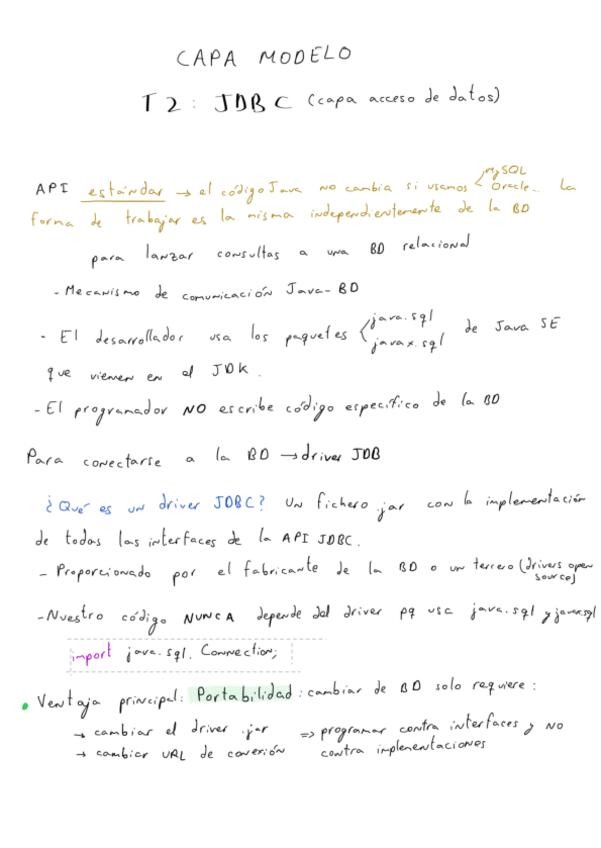 CAPA MODELO
T2: JDBC (capa acceso de datos)
API estándar → el código Java no cambia si usamos < mySQL Oracle... La
forma de trabajar es la misma independientemente de la BD
para lanzar consultas a una BD relacional
- Mecanismo de comunicación Java-BD
- El desarrollador usa los paquetes < java.sql javax.sql de Java SE
que vienen en el JDK.
- El programador NO escribe código específico de la BD
Para conectarse a la BD → driver JDB
¿Qué es un driver JDBC? Un fichero .jar con la implementación
de todas las interfaces de la API JDBC.
- Proporcionado por el fabricante de la BD o un tercero (drivers open
source)
- Nuestro código NUNCA depende del driver pq usa java.sql y javax.sql
import java.sql.Connection;
• Ventaja principal: Portabilidad: cambiar de BD solo requiere:
→ cambiar el driver .jar ⇒ programar contra interfaces y no
→ cambiar URL de conexión contra implementaciones